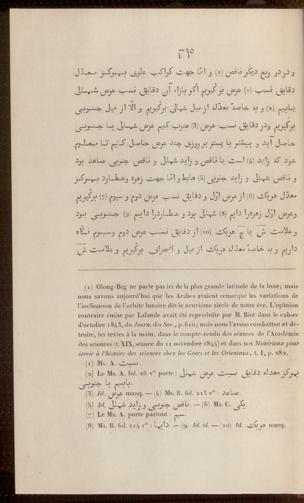 ٣٩٥
و در دو ربع دیگر ناقص (1) و امّا جهت کواکب علوی بهرکز معدّل
دقایق نسب (2) عرض برگیریم اگر بازاء آن دقایق نسب عرض شمالی
یابیم (3) و به خاصهٔ معدّله از میل شمالی برگیریم و الّا از میل جنوبی
برگیریم ودر دقایق نسب عرض (3) ضرب کنیم عرض شمالی یا جنوبی
حاصل آید و پیشتر یا پستر بر روزی چند عرض حاصل کنیم تا معلوم
شود که زاید (4) است یا ناقص و زاید شمالی و ناقص جنوبی صاعد بود
و ناقص شمالی و زاید جنوبی (5) هابط و امّا جهت زهره وعطارد بهرکز
معدّل هریک (6) از عرض اوّل و دقایق نسب عرض دوم و سیوم (7) برگیریم
وعرض اوّل زهره را دایم (8) شمالی بود و عطارد را دایم (9) جنوبی بود
هریک (10) از دقایق نسب عرض دوم وسیوم نگاه
داریم و به خاصهٔ معدّله هریک از میل و انحراف برگیریم و علامت
(1) Olong-Beg ne parle pas ici de la plus grande latitude de la lune; mais
nous savons aujourd'hui que les Arabes avaient remarqué les variations de
l'inclinaison de l'orbite lunaire dès le neuvième siècle de notre ère. L'opinion
contraire émise par Lalande avait été reproduite par M. Biot dans le cahier
d'octobre 1843, du Journ. des Sav., p. 610; mais nous l'avons combattue et dé-
truite, les textes à la main, dans le compte-rendu des séances de l'Académie
des sciences (t. XIX, séance du 11 novembre 1844) et dans nos Matériaux pour
servir à l'histoire des sciences chez les Grecs et les Orientaux, t. I, p. 282.
(1) Ms. A. نسبت.
(2) Le Ms. A. fol. 26 v° porte : بهرکز معدله دقایق نسبت عرض شمالی
یابیم یا جنوبی.
(3) Id. عرض manq. — (4) Ms. B. fol. 213 v° : صاعد.
(5) Id. ناقص جنوبی و زاید شمالی. — (6) Ms. C. یکی.
(7) Le Ms. A. porte partout : سیم.
(8) Ms. B. fol. 214 r° : دایما. — (9) Id. id. — (10) Id. هریک manq.